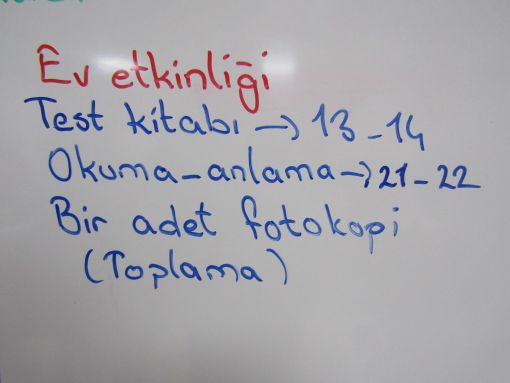 Ev etkinliği
Test kitabı → 13-14
Okuma-anlama → 21-22
Bir adet fotokopi
(Toplama)